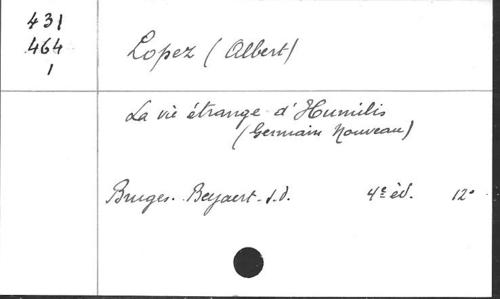 431
464
1
Lopez (Albert)
La vie étrange d'Humilis
(Germain Nouveau)
Bruges. Beyaert. s.d. 4e éd. 12°